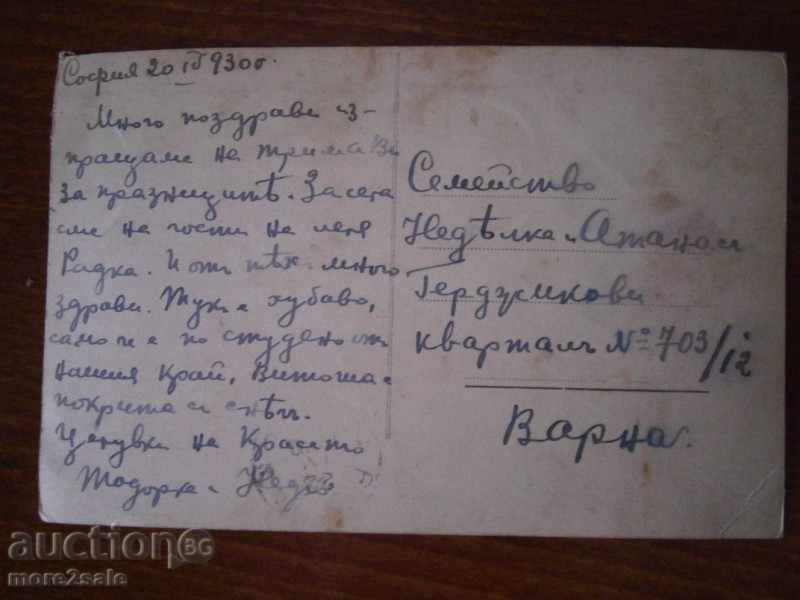 София 20 IV 930 г.
Много поздрави из-
пращаме на трима Ви
за празницитѣ. Засега
сме на гости на леля
Радка. И отъ тѣхъ много
здрави. Тукъ е хубаво,
само че е по студено отъ
нашия край, Витоша е
покрита съ снѣгъ.
Целувки на Красето
Тодорка и
Семейство
Недѣлка и Атанасъ
Герджикови
кварталъ № 703/12
Варна.
auctionBG
more2sale